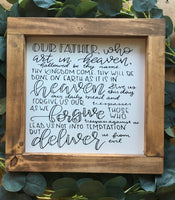 OUR FATHER, who
art in heaven,
hallowed be thy name
THY KINGDOM COME, THY WILL BE
DONE ON EARTH AS IT IS IN
heaven Give us
this day
our daily bread and
FORGIVE US OUR trespasses
AS We forgive THOSE
WHO
trespass against us
LEAD US NOT INTO TEMPTATION
BUT deliver us from
evil